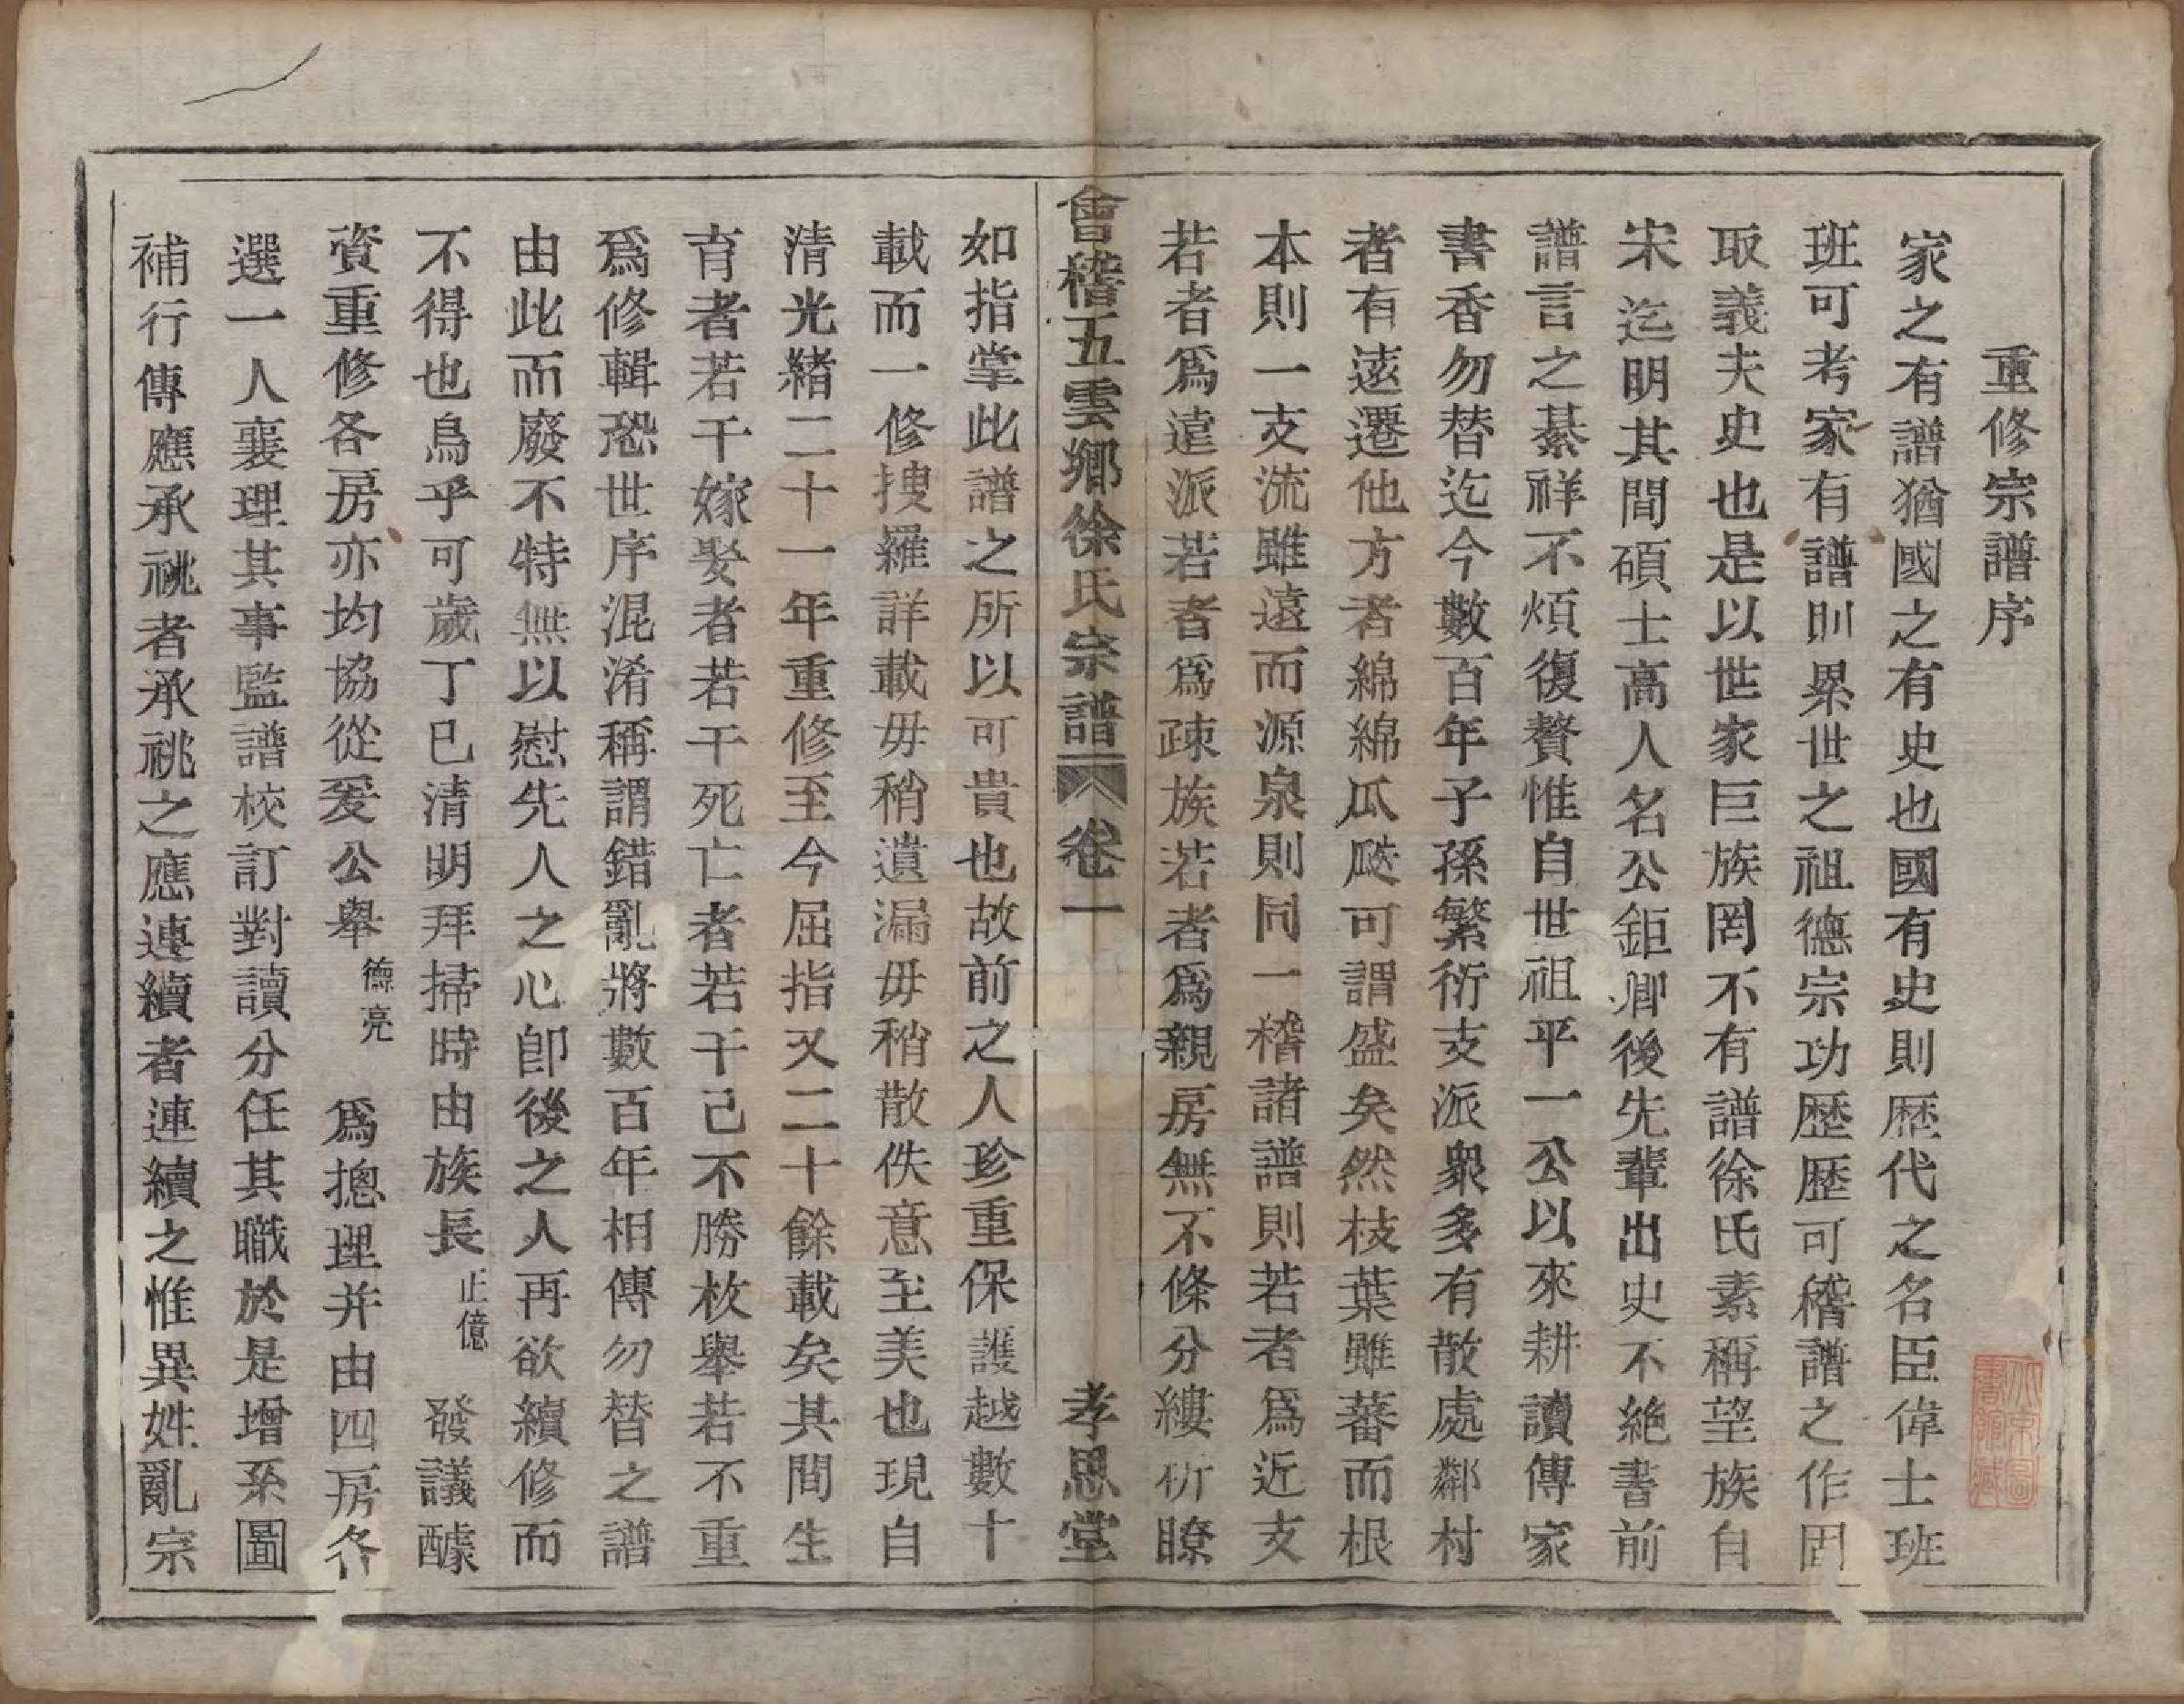 重修宗譜序
家之有譜猶國之有史也國有史則歴代之名臣偉士班
班可考家有譜則累世之祖德宗功歴歴可稽譜之作固
取義夫史也是以世家巨族罔不有譜徐氏素稱望族自
宋迄明其間碩士高人名公鉅卿後先輩出史不絶書前
譜言之綦祥不煩復贅惟自世祖平一公以來耕讀傳家
書香勿替迄今數百年子孫繁衍支派衆多有散處鄰村
者有遠遷他方者綿綿瓜瓞可謂盛矣然枝葉雖蕃而根
本則一支流雖遠而源泉則同一稽諸譜則若者爲近支
若者爲遠派若者爲疎族若者爲親房無不條分縷析瞭
會稽五雲鄉徐氏宗譜 卷一 孝思堂
如指掌此譜之所以可貴也故前之人珍重保護越數十
載而一修搜羅詳載毋稍遺漏毋稍散佚意至美也現自
清光緖二十一年重修至今屈指又二十餘載矣其間生
育者若干嫁娶者若干死亡者若干已不勝枚舉若不重
爲修輯恐世序混淆稱謂錯亂將數百年相傳勿替之譜
由此而廢不特無以慰先人之心卽後之人再欲續修而
不得也烏乎可歲丁巳清明拜掃時由族長止億發議醵
資重修各房亦均協從爰公舉德亮爲摠理并由四房各
選一人襄理其事監譜校訂對讀分任其職於是增系圖
補行傳應承祧者承祧之應連續者連續之惟異姓亂宗